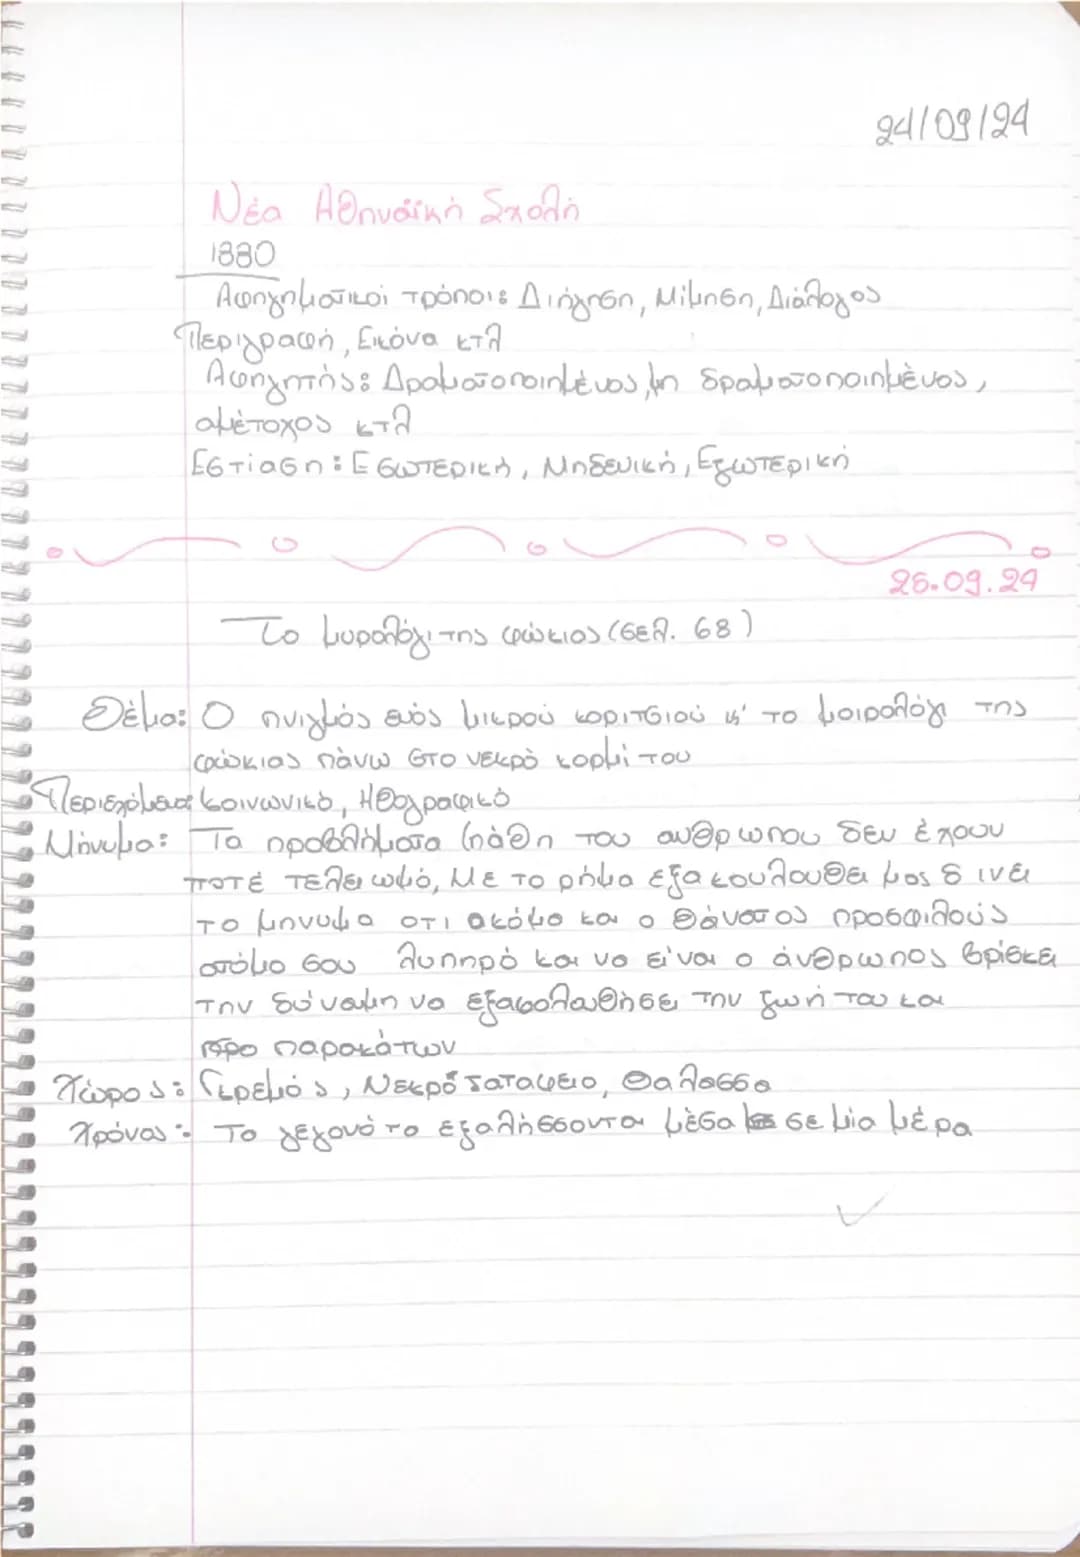 24/09/24
Νέα Αθηναϊκή Σχολή
1880
Αφηγηματικοί τρόποι: Διήγηση, Μίμηση, Διάλογος
Περιγραφή, Εικόνα κτλ
Αφηγητής: Δραματοποιημένος, μη δραματοποιημένος,
αμέτοχος κτλ
Εστίαση: Εσωτερική, Μηδενική, Εξωτερική
26.09.24
Το μυρολόγι της φώκιας (σελ. 68)
Θέμα: Ο πνιγμός ενός μικρού κοριτσιού κ' το μοιρολόγι της
φώκιας πάνω στο νεκρό κορμί του
Περιεχόμενο: Κοινωνικό, Ηθογραφικό
Μήνυμα: Τα προβλήματα (πάθη του ανθρωπου δεν έχουν
ποτέ τελειωμό, Με το ρήμα εξακουλουθεί μας δινει
το μηνυμα οτι ακόμα και ο θάνατος προσφιλούς
ατόμο σου λυπηρό και να είναι ο άνθρωπος βρίσκει
την δύναμη να εξακολουθήσει την ζωή του και
προ παρακάτων
Χώρος: Γκρεμός, Νεκροταταφειο, Θαλασσα
Χρόνος: Το γεγονότα εξαλήσσονται μέσα σε μία μέρα